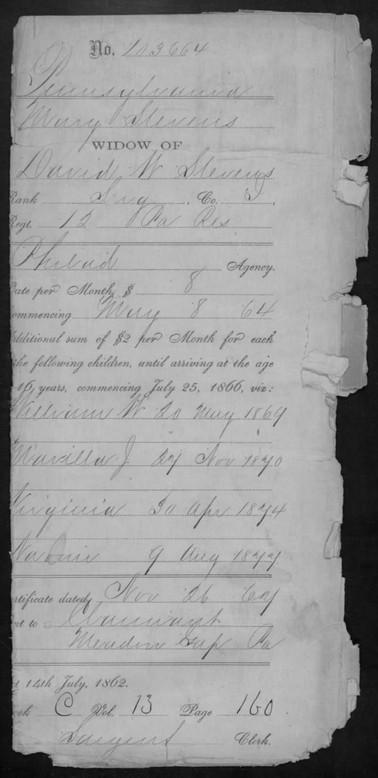 No. 103664
Pennsylvania
Mary Stevens
WIDOW OF
David W Stevens
Rank Co. I
Regt. 12 Pa Res
Philad Agency.
Rate per Month, $ 8
Commencing May 8 64
Additional sum of $2 per Month for each
the following children, until arriving at the age
16 years, commencing July 25, 1866, viz:
William W 20 May 1869
Marilla J 27 Nov 1870
Virginia 30 Apr 1874
9 Aug 1877
ertificate dated Nov 26 67
nt to Claimant
Pa
ct 14th July, 1862.
ook C Vol. 13 Page 160
Sargent Clerk.